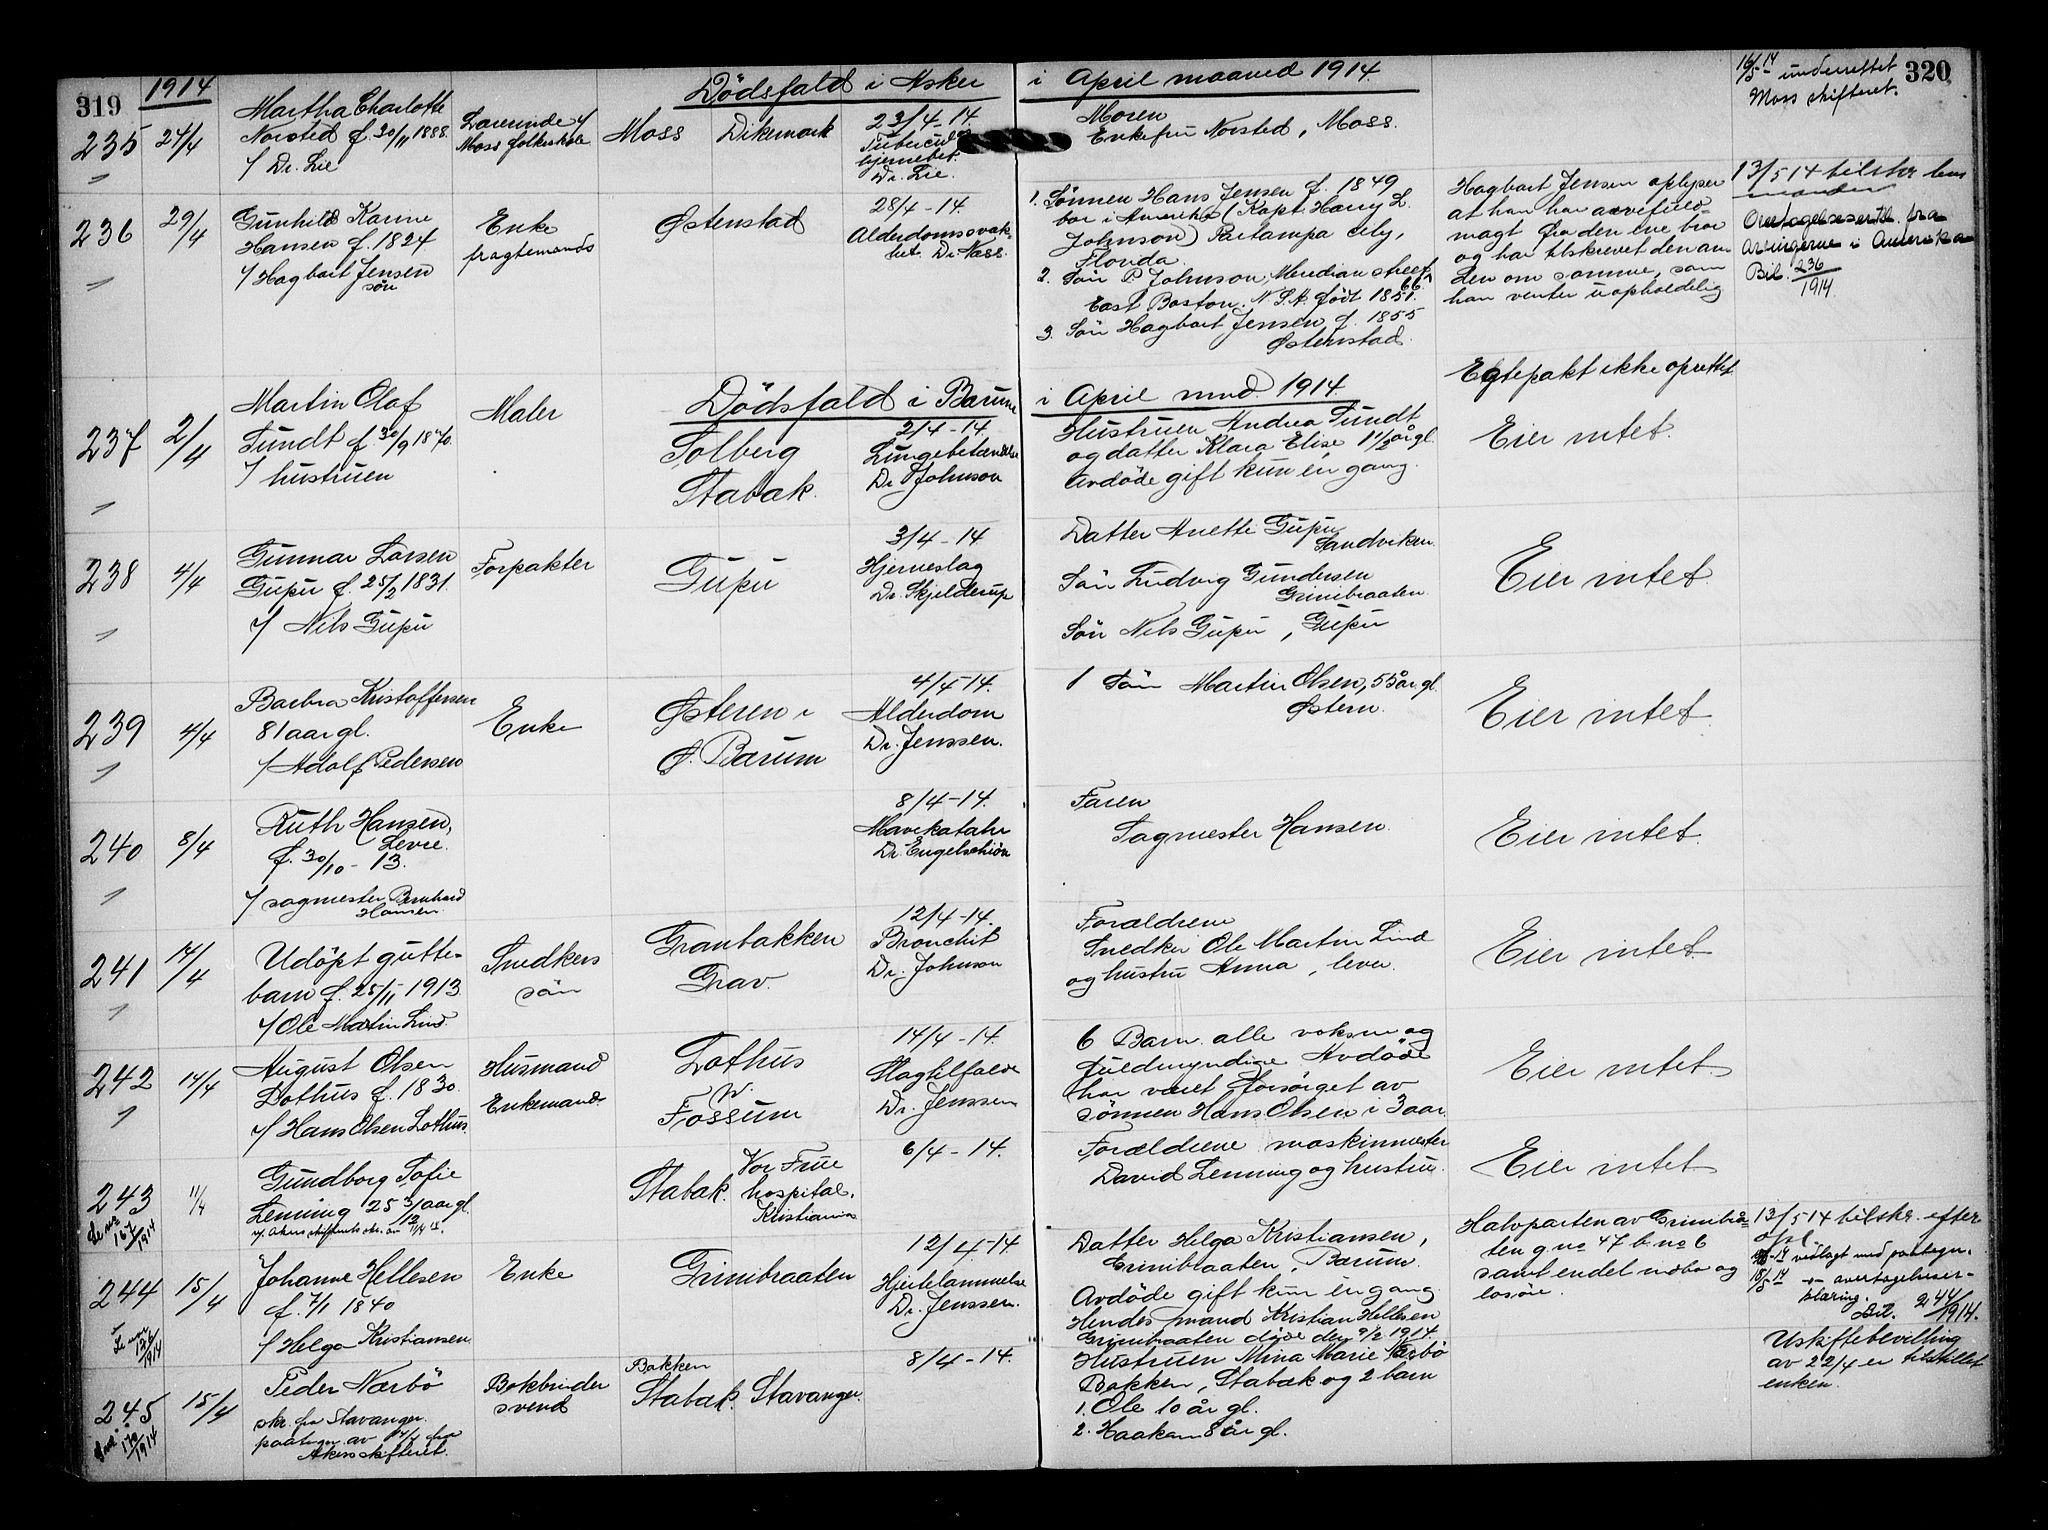 319
1914
Dödsfald i Asker
i April maaned 1914.
320
235
24/4
Martha Charlotte
Norsted f. 30/11 1888.
/ Dr. Lie
Lærerinde v/
Moss folkeskole
Moss
Dikemark
23/4-14.
Tubercul
hjernebet.
Dr. Lie.
Moren
Enkefru Norsted, Moss.
16/5-14 underrettet
Moss skifteret.
236
29/4
Gunhild Karine
Hansen f. 1824
/ Hagbart Jensen
sön
Enke
fragtemands
Østenstad
28/4-14.
Alderdomssvak-
het. Dr. Næss.
1. Sönnen Hans Jensen f. 1849
bor i Amerika (Kapt. Harry L.
Johnson) Partampa City,
Florida.
2. Sön P. Johnson, Meridian street 66,
East Boston. N.S.A. født 1851.
3. Sön Hagbart Jensen f. 1855
Østenstad.
Hagbart Jensen oplyser
at han har arvefuld-
magt fra den ene bror
og har tilskrevet den an
den om samme, som
han venter uopholdelig
13/5 14 tilskr. lens
manden
Overtagelseserkl. fra
arvingerne i Amerika
Bil. 236/1914.
Dödsfald i Bærum
i April mnd. 1914.
237
2/4
Martin Olaf
Sundt f. 30/9 1870.
/ hustruen
Maler
Solberg
Stabæk.
2/4-14.
Lungebetændelse
Dr. Johnson
Hustruen Andrea Sundt
og datter Klara Elise, 1 1/2 år gl.
Avdöde gift kun én gang.
Egtepakt ikke oprettet
Eier intet.
238
4/4
Gunnar Larsen
Gupu f. 25/2 1831.
/ Nils Gupu
Forpakter
Gupu
3/4-14
Hjerneslag
Dr. Skjelderup
Datter Anette Gupu
Sandviken.
Sön Ludvig Gundersen
Grinibraaten.
Sön Nils Gupu, Gupu
Eier intet
239
4/4
Barbra Kristoffersen
81 aar gl.
/ Adolf Pedersen
Enke
Østeren i
Ø. Bærum
4/4-14.
Alderdom
Dr. Jenssen.
1 Sön Martin Olsen, 55 år gl.
Østern.
Eier intet.
240
8/4
Ruth Hansen,
Levre.
f. 30/10-13.
/ sagmester Bernhard
Hansen.
8/4-14.
Mavekatahr
Dr. Engelschiön
Faren
Sagmester Hansen.
Eier intet.
241
14/4
Udöpt gutte-
barn f. 25/11 1913
/ Ole Martin Lind.
Snedkers
sön
Granbakken
Grav.
12/4-14.
Bronchit
Dr. Johnson
Forældrene
Snedker Ole Martin Lind
og hustru Anna, lever.
Eier intet
242
14/4
August Olsen
Lothus f. 1830.
/ Hans Olsen Lothus.
Husmand
Enkemand.
Lothus
Fossum
14/4-14.
Slagtilfælde
Dr. Jenssen
6 Barn alle voksne og
fuldmyndige. Avdöde
har været forsörget av
sönnen Hans Olsen i 3 aar.
Eier intet
243
11/4
Gundborg Sofie
Lenning 25 3/12 aar gl.
Stabæk.
Vor Frue
hospital,
Kristiania
6/4-14.
Forældrene maskinmester
David Lenning og hustru.
Eier intet
244
15/4
Johanne Hellesen
f. 7/1 1840
/ Helga Kristiansen
Enke
Grinibraaten
12/4-14
Hjertelammelse
Dr. Jenssen.
Datter Helga Kristiansen,
Grinibraaten, Bærum.
Avdöde gift kun én gang.
Hendes mand Kristian Hellesen
Grinibraaten döde den 9/2 1914.
Halvparten av Grinibrå-
ten g.no 47 b.no 6
samt endel indbo og
lösöre.
13/5 14 tilskr. efter
vedlagt med paategn.
18/5-14
Bil. 244/1914.
245
15/4
Peder Nærbö
skr. fra Stavanger.
Akers skifteret.
Bokbinder
svend
Bakken
Stabæk.
Stavanger.
8/4-14.
Hustruen Mina Marie Nærbö
Bakken, Stabæk og 2 barn
1. Ole 10 år gl.
2. Haakam 8 år gl.
Uskiftebevilling
av 22/4 er tilstillet
enken.